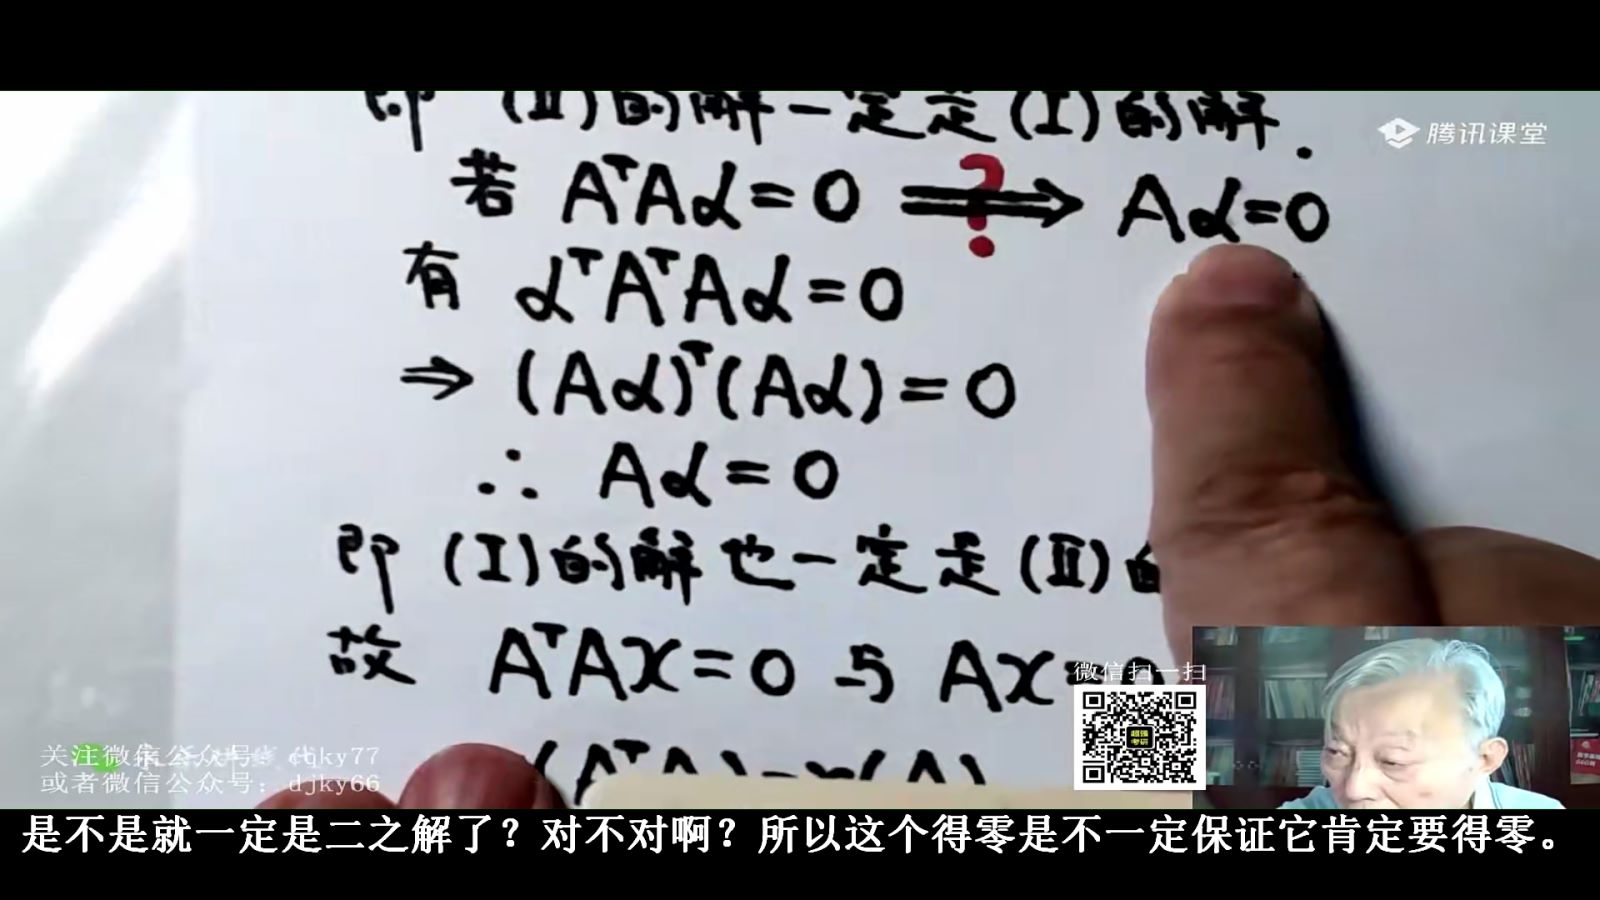 即 (II)的解一定是(I)的解.
腾讯课堂
若 AᵀAα=0 ⟹ ? Aα=0
有 αᵀAᵀAα=0
⇒ (Aα)ᵀ(Aα)=0
∴ Aα=0
即 (I)的解也一定是(II)的
故 AᵀAx=0 与 Ax=0
微信扫一扫
超强考研
(AᵀA)=r(A)
关注微信公众号：cqky77
或者微信公众号：djky66
是不是就一定是二之解了？对不对啊？所以这个得零是不一定保证它肯定要得零。